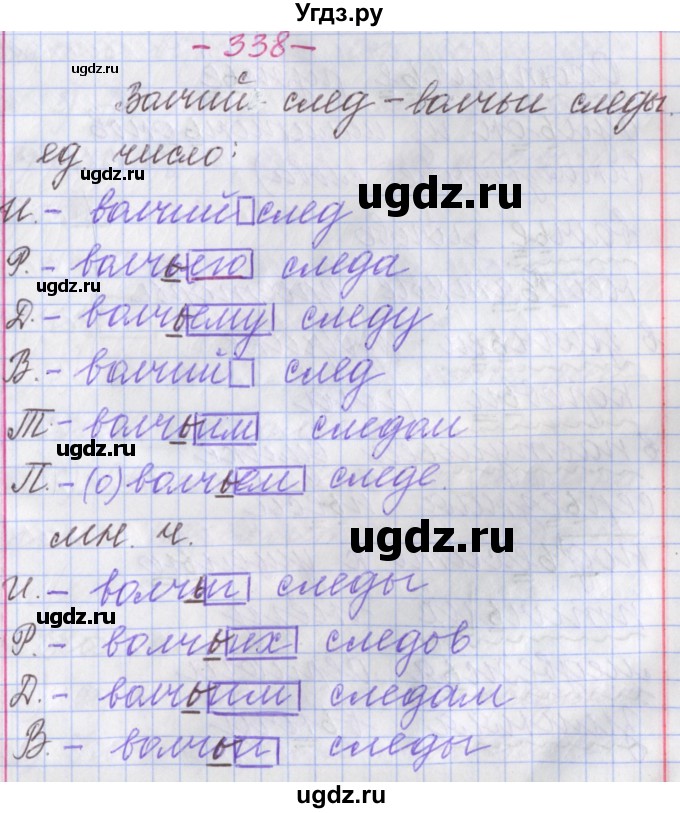 Угдз.ру
- 338 -
ugdz.ru
Волчий след - волчьи следы.
ед число:
ugdz.ru
ugdz.ru
И. - волчий след
Р. - волчьего следа
ugdz.ru
Д. - волчьему следу
В. - волчий след
Т. - волчьим следом
ugdz.ru
П. - (о) волчьем следе.
мн. ч.
ugdz.ru
И. - волчьи следы
ugdz.ru
Р. - волчьих следов
Д. - волчьим следам
ugdz.ru
В. - волчьи следы
ugdz.ru